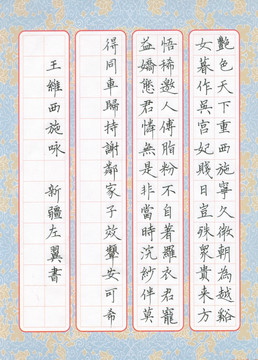 艷色天下重西施寧久微朝為越谿
女暮作吳宮妃賤日豈殊眾貴来方
悟稀邀人傅脂粉不自著羅衣君寵
益嬌態君憐無是非當時浣紗伴莫
得同車歸持謝鄰家子效顰安可希
王維西施咏 新疆左翼書